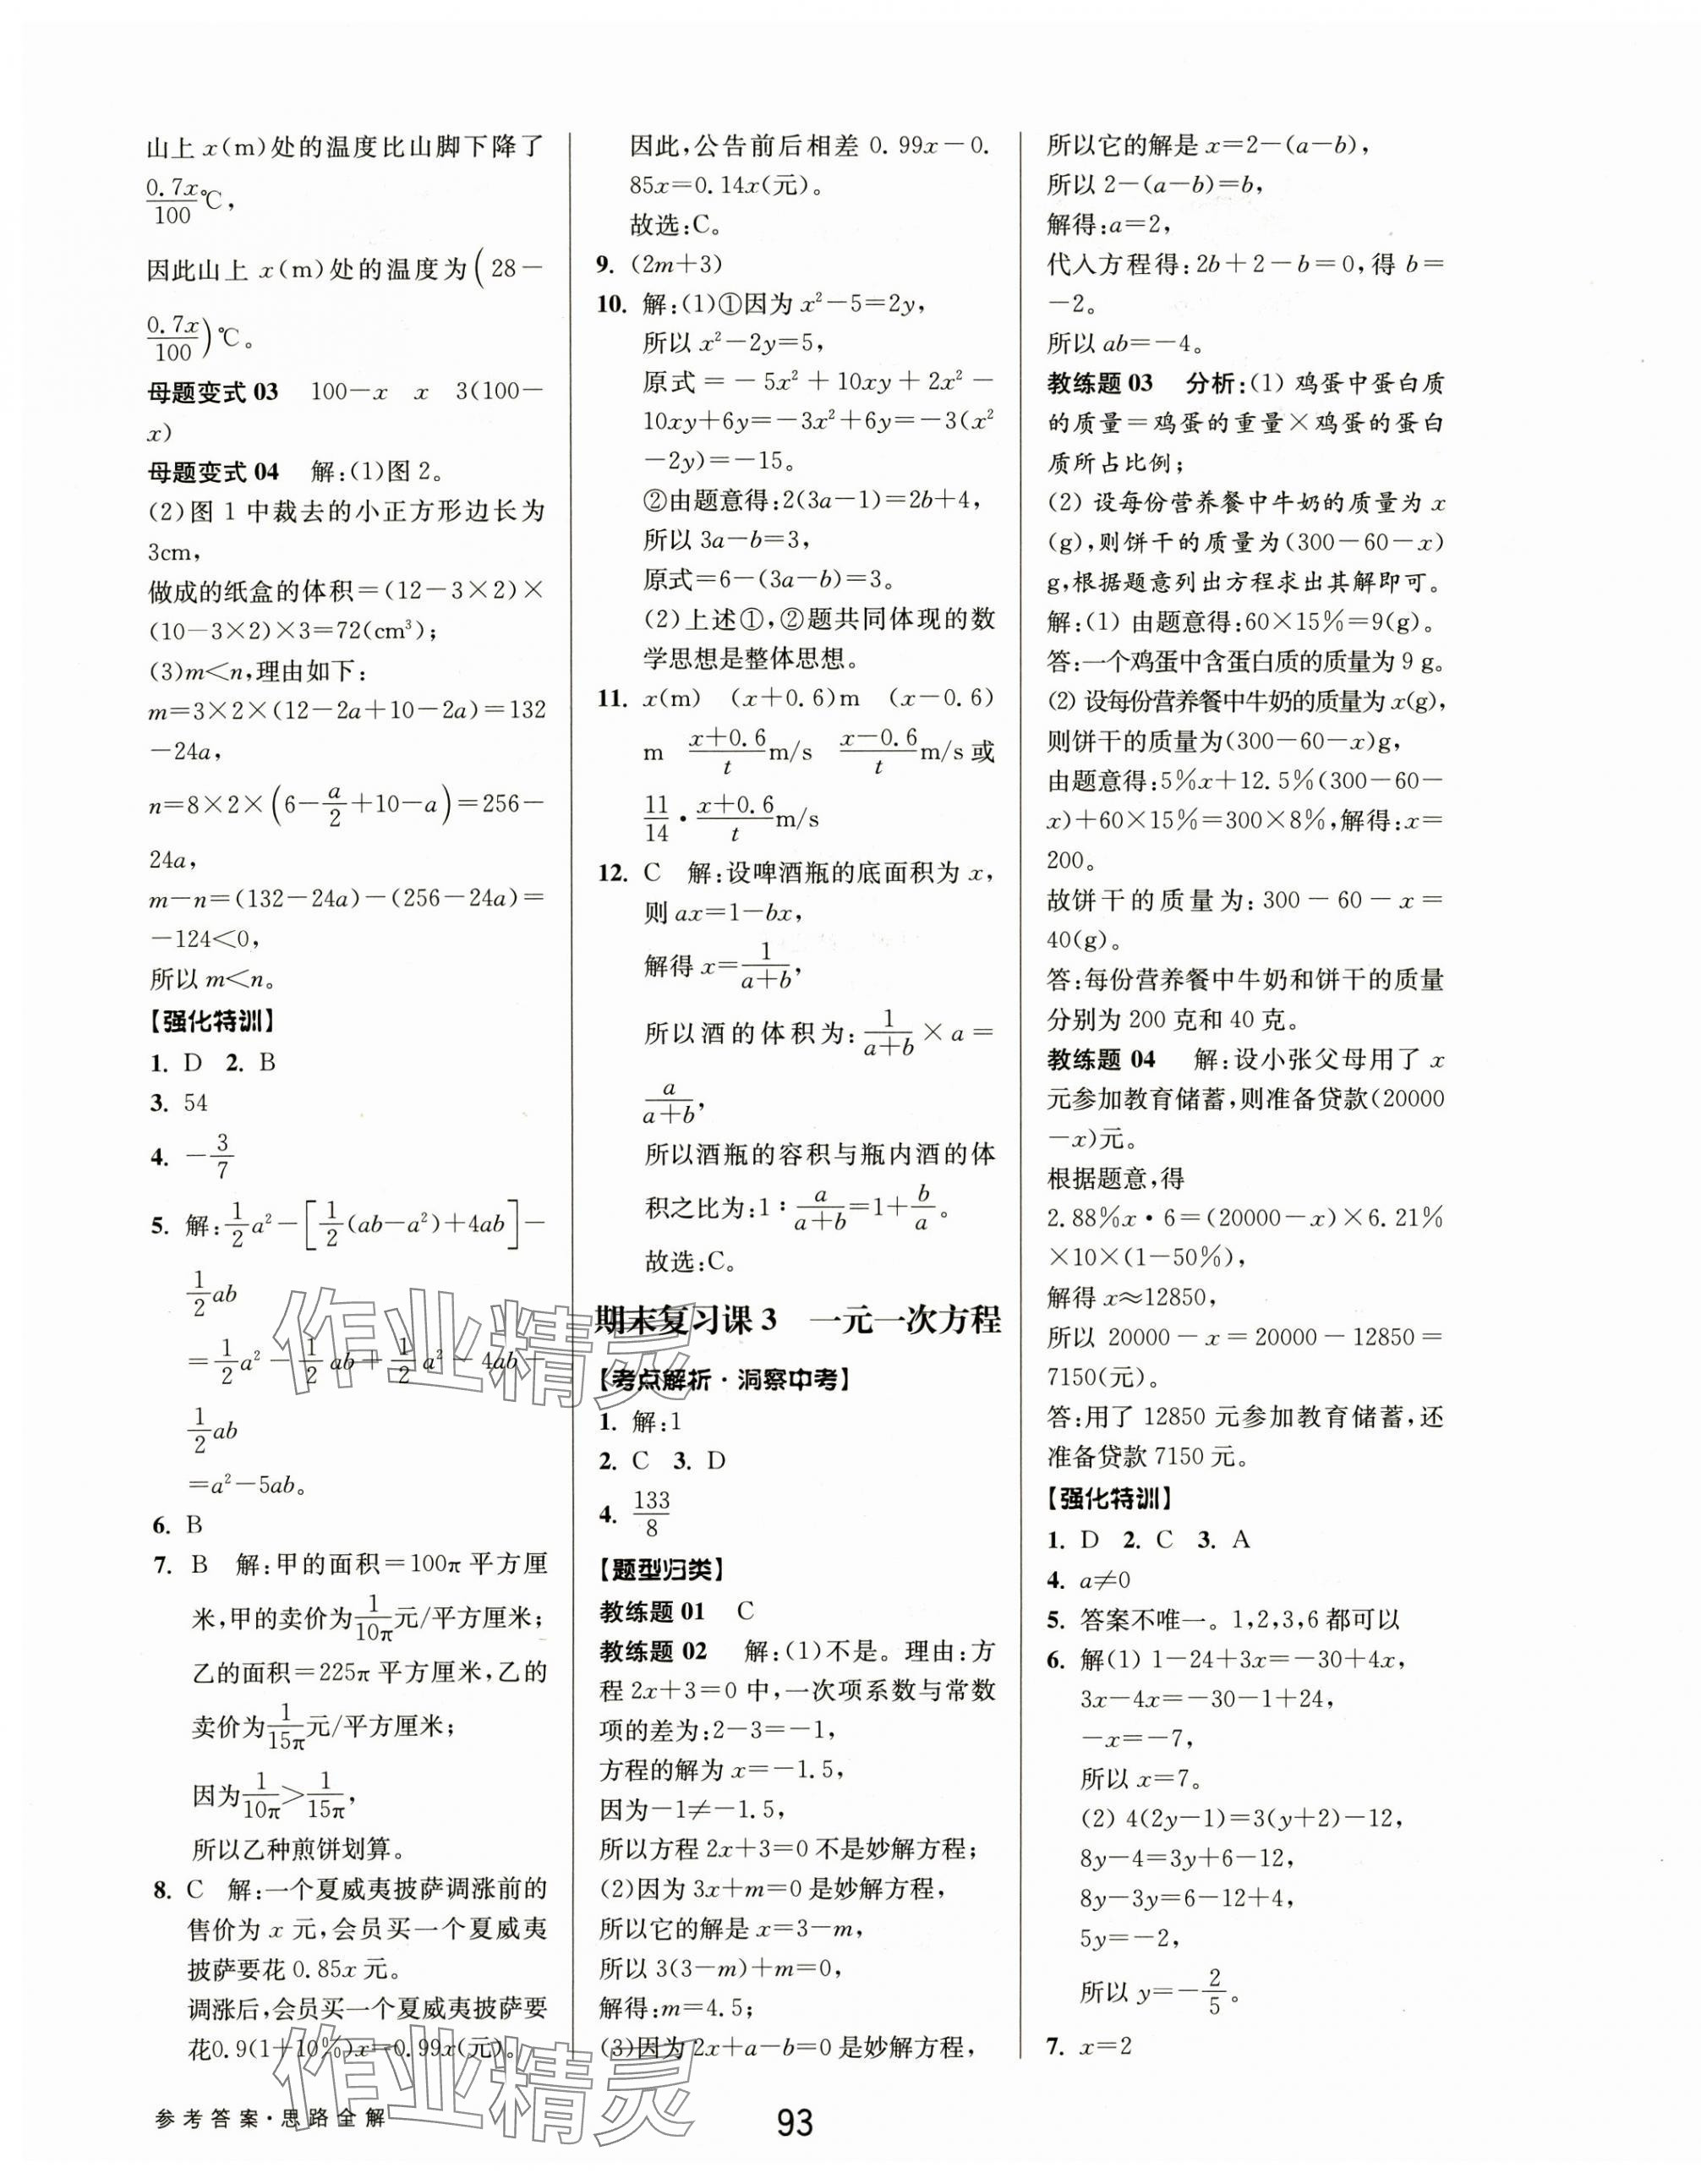 山上 x(m)处的温度比山脚下降了
0.7x/100 ℃,
因此山上 x(m)处的温度为(28－
0.7x/100)℃。
母题变式 03　100－x　x　3(100－
x)
母题变式 04　解:(1)图 2。
(2)图 1 中裁去的小正方形边长为
3cm,
做成的纸盒的体积＝(12－3×2)×
(10－3×2)×3＝72(cm³);
(3)m＜n,理由如下:
m＝3×2×(12－2a＋10－2a)＝132
－24a,
n＝8×2×(6－a/2＋10－a)＝256－
24a,
m－n＝(132－24a)－(256－24a)＝
－124＜0,
所以 m＜n。
【强化特训】
1. D　2. B
3. 54
4. －3/7
5. 解:1/2a²－[1/2(ab－a²)＋4ab]－
1/2ab
＝1/2a²－1/2ab＋1/2a²－4ab－
1/2ab
＝a²－5ab。
6. B
7. B　解:甲的面积＝100π 平方厘
米,甲的卖价为1/10π元/平方厘米;
乙的面积＝225π 平方厘米,乙的
卖价为1/15π元/平方厘米;
因为1/10π＞1/15π,
所以乙种煎饼划算。
8. C　解:一个夏威夷披萨调涨前的
售价为 x 元,会员买一个夏威夷
披萨要花 0.85x 元。
调涨后,会员买一个夏威夷披萨要
花0.9(1＋10%)x＝0.99x(元)。
因此,公告前后相差 0.99x－0.
85x＝0.14x(元)。
故选:C。
9. (2m＋3)
10. 解:(1)①因为 x²－5＝2y,
所以 x²－2y＝5,
原式＝－5x²＋10xy＋2x²－
10xy＋6y＝－3x²＋6y＝－3(x²
－2y)＝－15。
②由题意得:2(3a－1)＝2b＋4,
所以 3a－b＝3,
原式＝6－(3a－b)＝3。
(2)上述①,②题共同体现的数
学思想是整体思想。
11. x(m)　(x＋0.6)m　(x－0.6)
m　(x＋0.6)/t m/s　(x－0.6)/t m/s 或
11/14·(x＋0.6)/t m/s
12. C　解:设啤酒瓶的底面积为 x,
则 ax＝1－bx,
解得 x＝1/(a＋b),
所以酒的体积为:1/(a＋b)×a＝
a/(a＋b),
所以酒瓶的容积与瓶内酒的体
积之比为:1∶a/(a＋b)＝1＋b/a。
故选:C。
期末复习课 3　一元一次方程
【考点解析·洞察中考】
1. 解:1
2. C　3. D
4. 133/8
【题型归类】
教练题 01　C
教练题 02　解:(1)不是。理由:方
程 2x＋3＝0 中,一次项系数与常数
项的差为:2－3＝－1,
方程的解为 x＝－1.5,
因为－1≠－1.5,
所以方程 2x＋3＝0 不是妙解方程;
(2)因为 3x＋m＝0 是妙解方程,
所以它的解是 x＝3－m,
所以 3(3－m)＋m＝0,
解得:m＝4.5;
(3)因为 2x＋a－b＝0 是妙解方程,
所以它的解是 x＝2－(a－b),
所以 2－(a－b)＝b,
解得:a＝2,
代入方程得:2b＋2－b＝0,得 b＝
－2。
所以 ab＝－4。
教练题 03　分析:(1) 鸡蛋中蛋白质
的质量＝鸡蛋的重量×鸡蛋的蛋白
质所占比例;
(2) 设每份营养餐中牛奶的质量为 x
(g),则饼干的质量为(300－60－x)
g,根据题意列出方程求出其解即可。
解:(1) 由题意得:60×15%＝9(g)。
答:一个鸡蛋中含蛋白质的质量为 9 g。
(2) 设每份营养餐中牛奶的质量为 x(g),
则饼干的质量为(300－60－x)g,
由题意得:5%x＋12.5%(300－60－
x)＋60×15%＝300×8%,解得:x＝
200。
故饼干的质量为:300－60－x＝
40(g)。
答:每份营养餐中牛奶和饼干的质量
分别为 200 克和 40 克。
教练题 04　解:设小张父母用了 x
元参加教育储蓄,则准备贷款(20000
－x)元。
根据题意,得
2.88%x·6＝(20000－x)×6.21%
×10×(1－50%),
解得 x≈12850,
所以 20000－x＝20000－12850＝
7150(元)。
答:用了 12850 元参加教育储蓄,还
准备贷款 7150 元。
【强化特训】
1. D　2. C　3. A
4. a≠0
5. 答案不唯一。1,2,3,6 都可以
6. 解(1) 1－24＋3x＝－30＋4x,
3x－4x＝－30－1＋24,
－x＝－7,
所以 x＝7。
(2) 4(2y－1)＝3(y＋2)－12,
8y－4＝3y＋6－12,
8y－3y＝6－12＋4,
5y＝－2,
所以 y＝－2/5。
7. x＝2
作业精灵
作业精灵
参考答案·思路全解
93